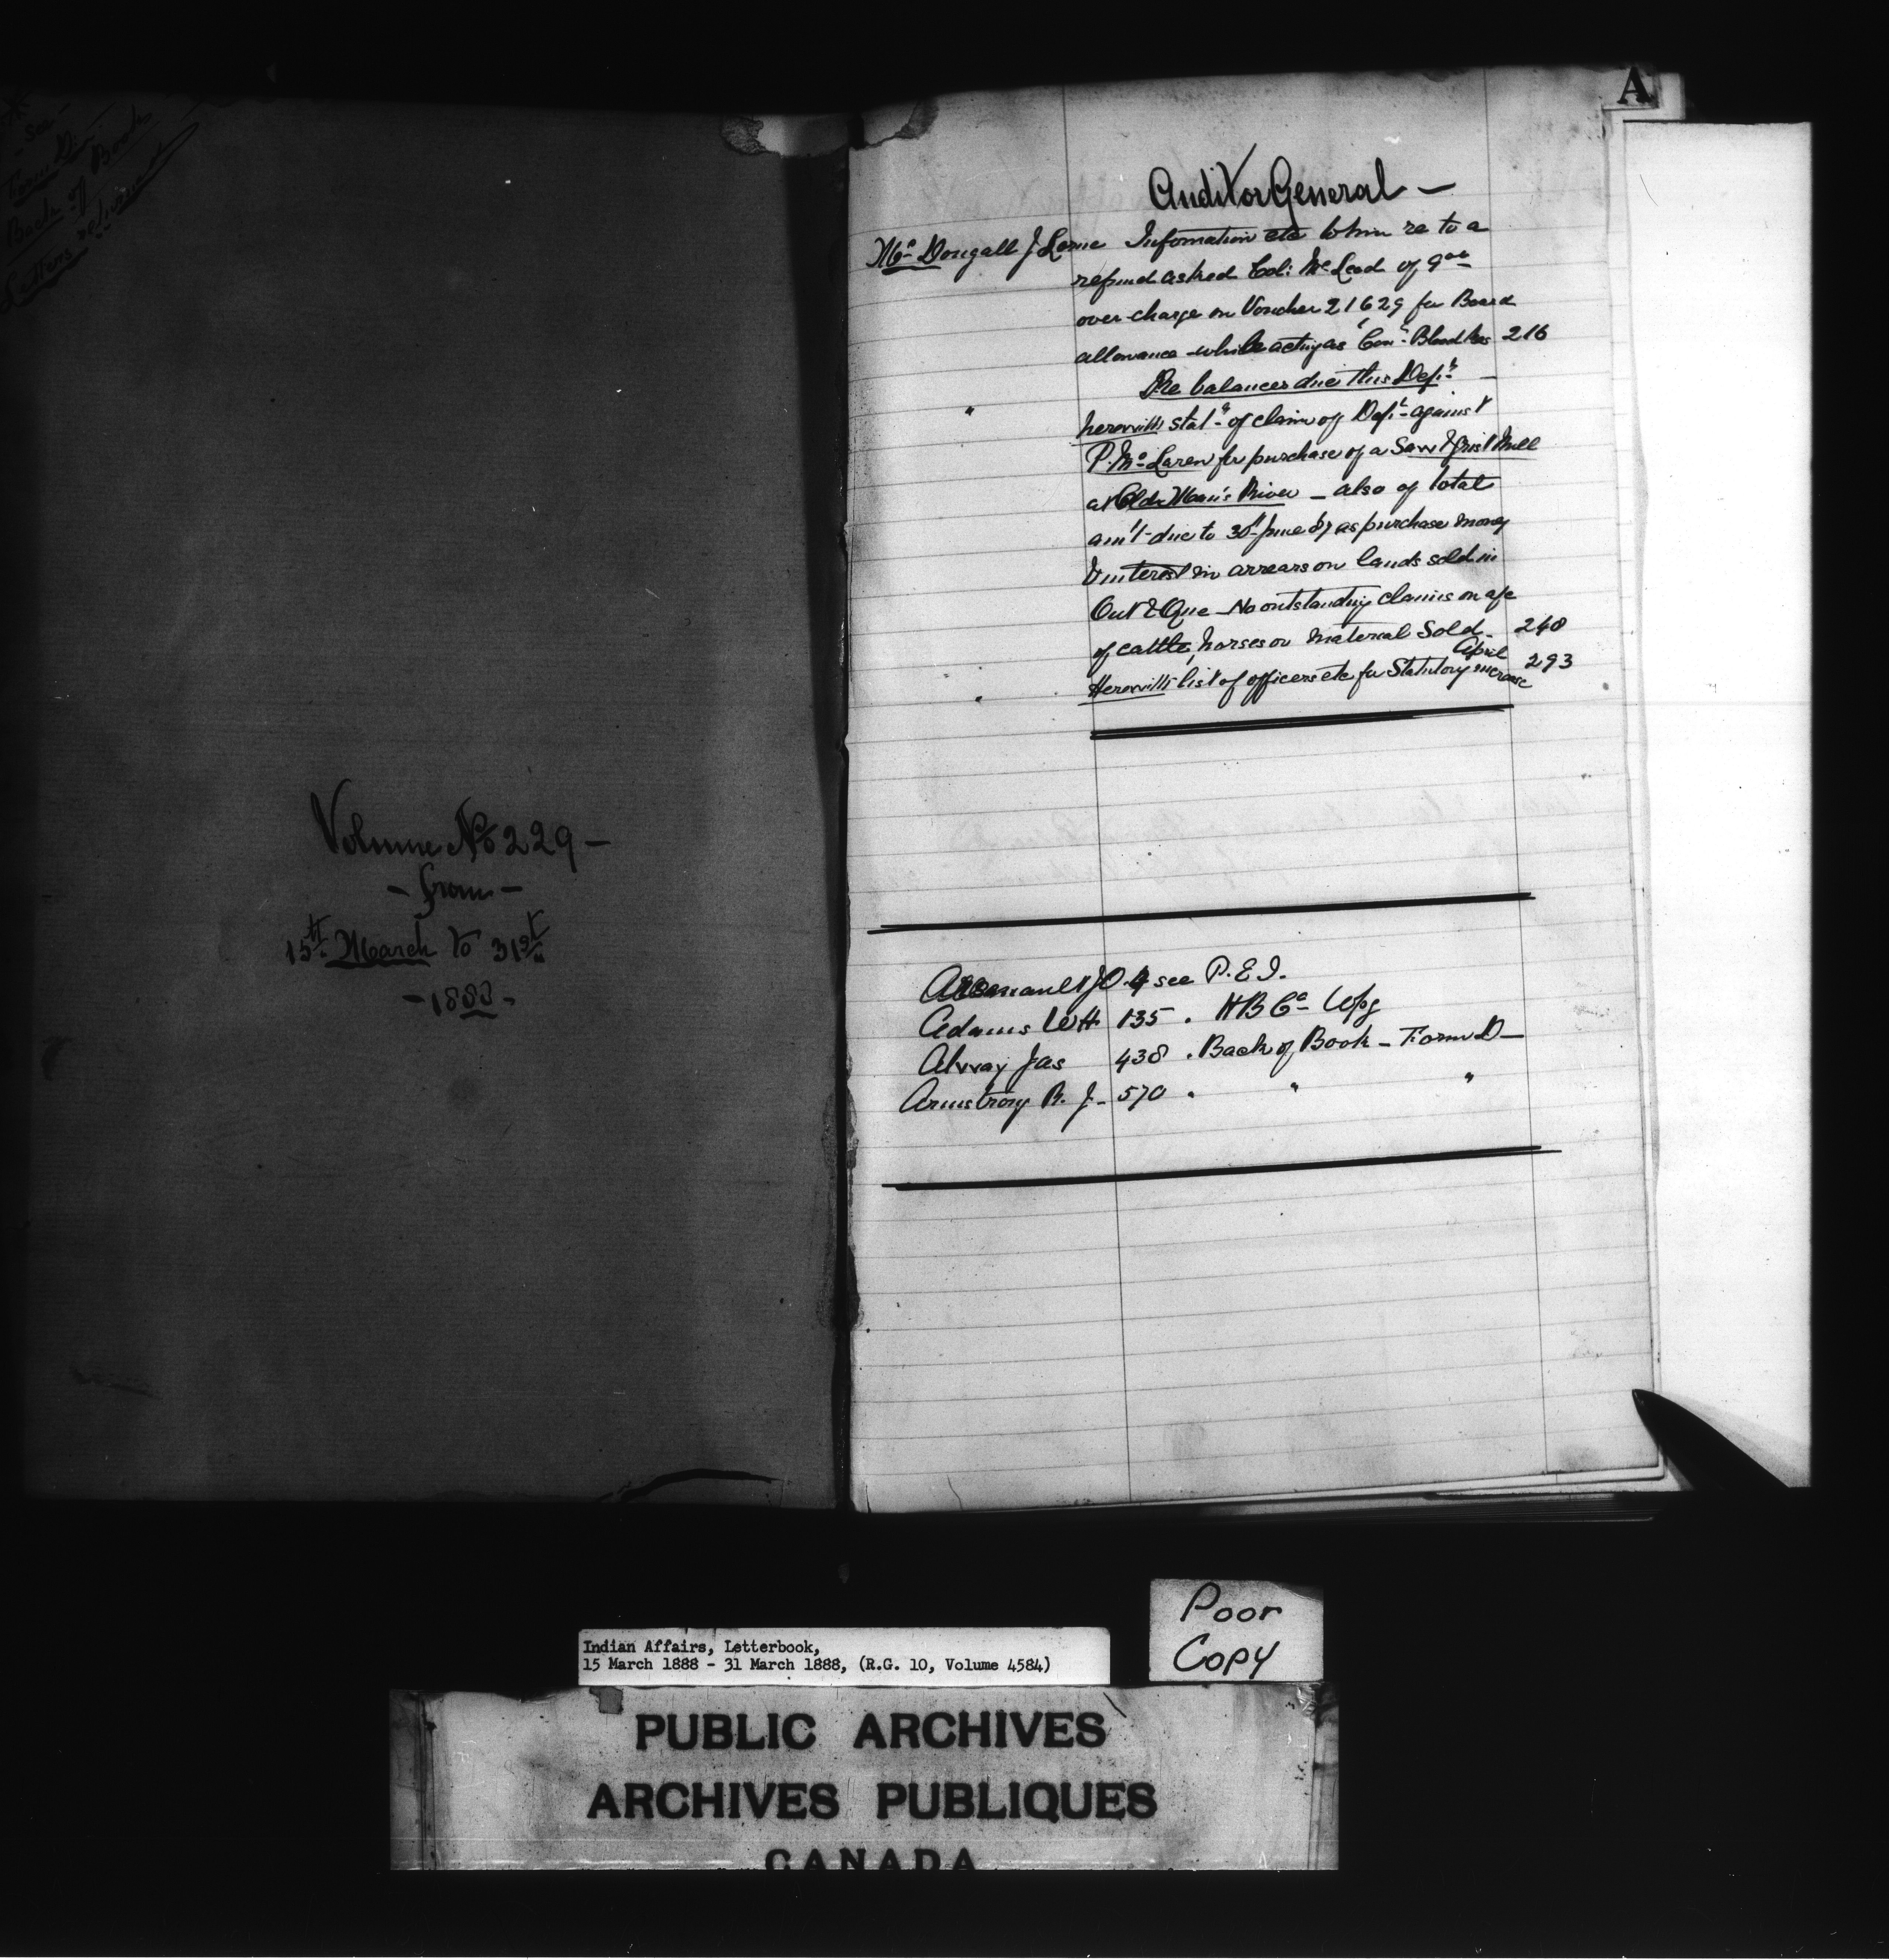 - See -
Form D. -
Back of Book
Letters returned
Volume No 229 -
- from -
15th March to 31st
- 1888 -
A
Auditor General -
Mc Dougall J Lorne Information etc to him re to a
refund asked Col: McLeod of 9 00
over charge on Voucher 21629 for Board
allowance while acting as Com. Blood Res 216
Re balances due this Dept -
" herewith statt of claim of Dept against
P. McLaren for purchase of a Saw & Grist Mill
at Old Man's River - also of total
am't due to 30th June 87 as purchase money
& interest in arrears on lands sold in
Ont & Que - No outstanding claims on a/c
of cattle, horses or material Sold - 240
" Herewith list of officers etc for Statutory increase April 293
Arsenault J O 4 see P. E. I.
Adams W H 135 . H B Co Wpg
Alway Jas 438 . Back of Book - Form D -
Armstrong R. J. - 570 . " "
Poor
Copy
Indian Affairs, Letterbook,
15 March 1888 - 31 March 1888, (R.G. 10, Volume 4584)
PUBLIC ARCHIVES
ARCHIVES PUBLIQUES
CANADA